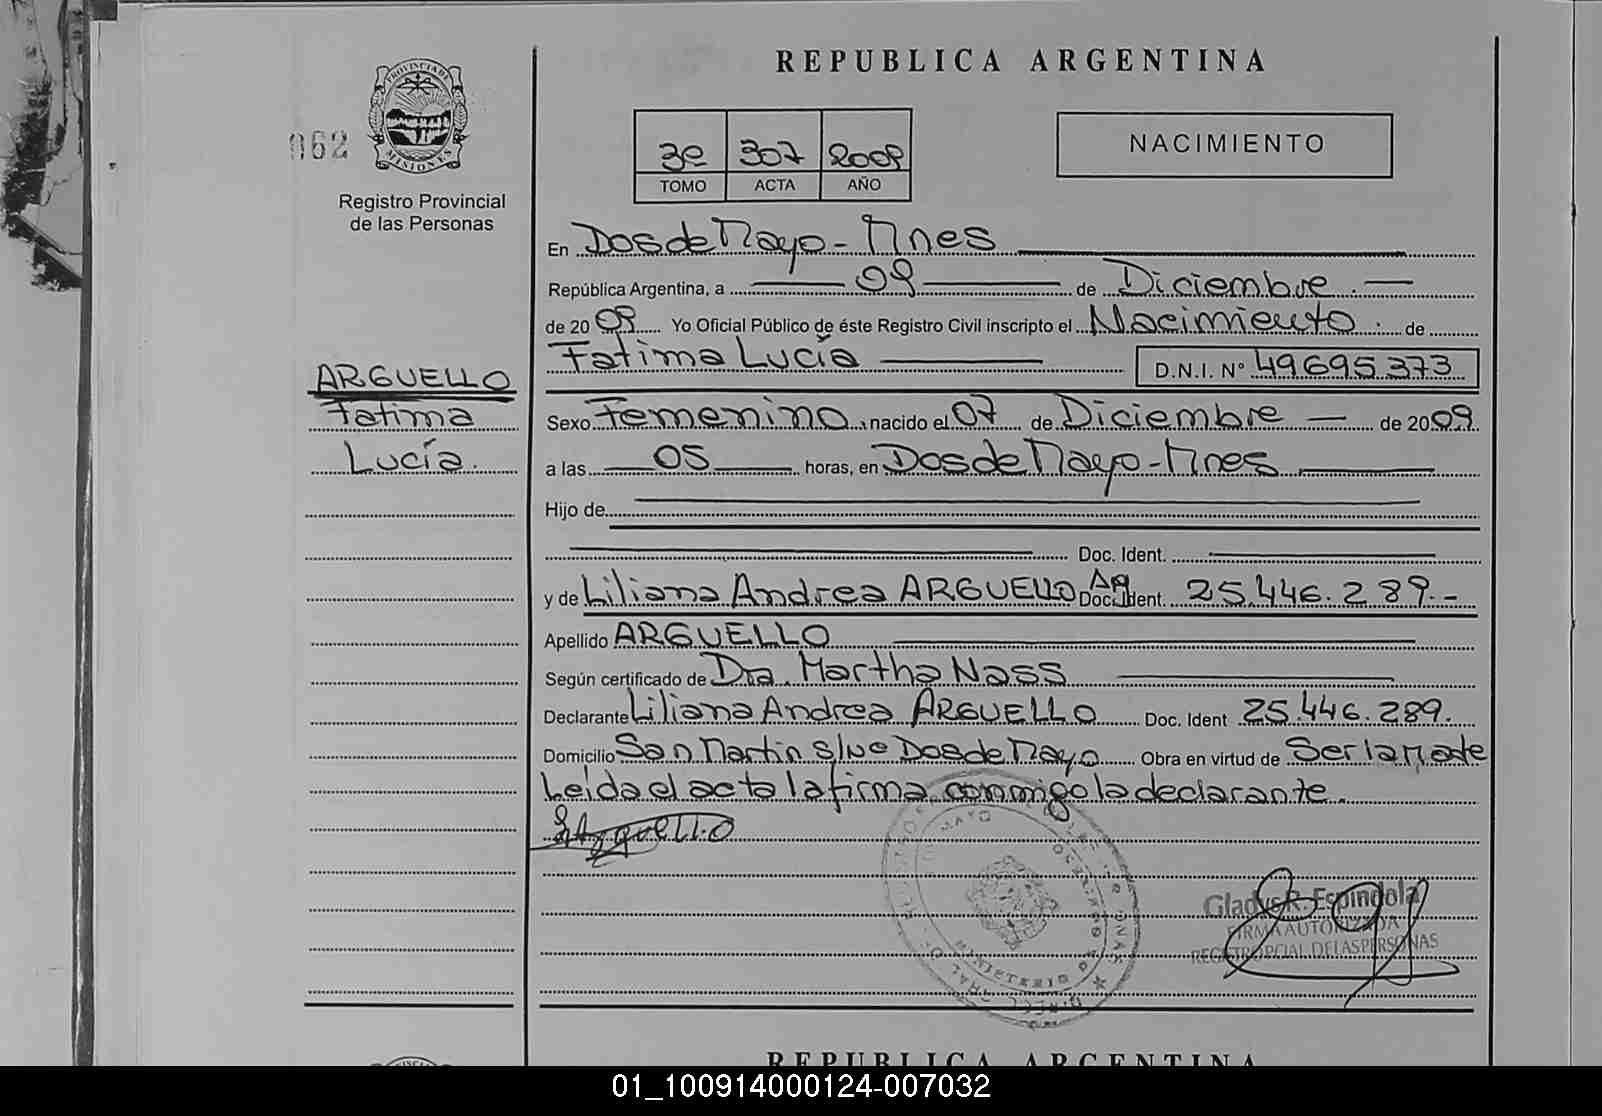 REPUBLICA ARGENTINA
PROVINCIA DE
MISIONES
062
Registro Provincial
de las Personas
3º 307 2009
TOMO ACTA AÑO
NACIMIENTO
En Dos de Mayo - Mnes
República Argentina, a 09 de Diciembre.
de 2009 Yo Oficial Público de éste Registro Civil inscripto el Nacimiento. de
Fatima Lucía D.N.I. Nº 49695373
ARGUELLO
Fatima
Lucía.
Sexo Femenino, nacido el 07 de Diciembre de 2009.
a las 05 horas, en Dos de Mayo - Mnes
Hijo de
Doc. Ident.
y de Liliana Andrea ARGUELLO Ag Doc. Ident. 25.446.289.-
Apellido ARGUELLO
Según certificado de Dra. Martha Nass
Declarante Liliana Andrea ARGUELLO Doc. Ident 25.446.289.
Domicilio San Martin s/nº Dos de Mayo Obra en virtud de Ser la madre
Leída el acta la firma conmigo la declarante.
LArguello
MAYO
MINISTERIO
Gladys R. Espindola
FIRMA AUTORIZADA
REGISTRO PCIAL DE LAS PERSONAS
REPUBLICA ARGENTINA
01_100914000124-007032